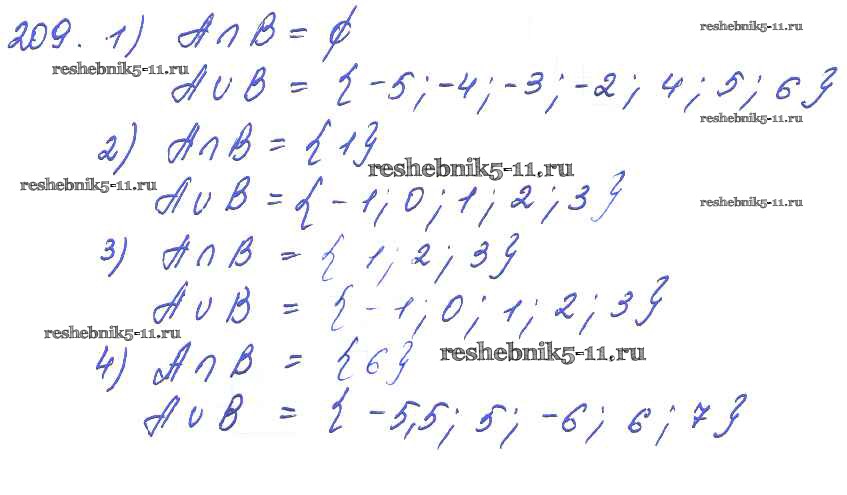 209. 1) A ∩ B = ∅
reshebnik5-11.ru
reshebnik5-11.ru
A ∪ B = { -5; -4; -3; -2; 4; 5; 6}
reshebnik5-11.ru
2) A ∩ B = {1}
reshebnik5-11.ru
reshebnik5-11.ru
A ∪ B = { -1; 0; 1; 2; 3}
reshebnik5-11.ru
3) A ∩ B = { 1; 2; 3}
A ∪ B = { -1; 0; 1; 2; 3}
reshebnik5-11.ru
4) A ∩ B = {6}
reshebnik5-11.ru
A ∪ B = { -5,5; 5; -6; 6; 7}